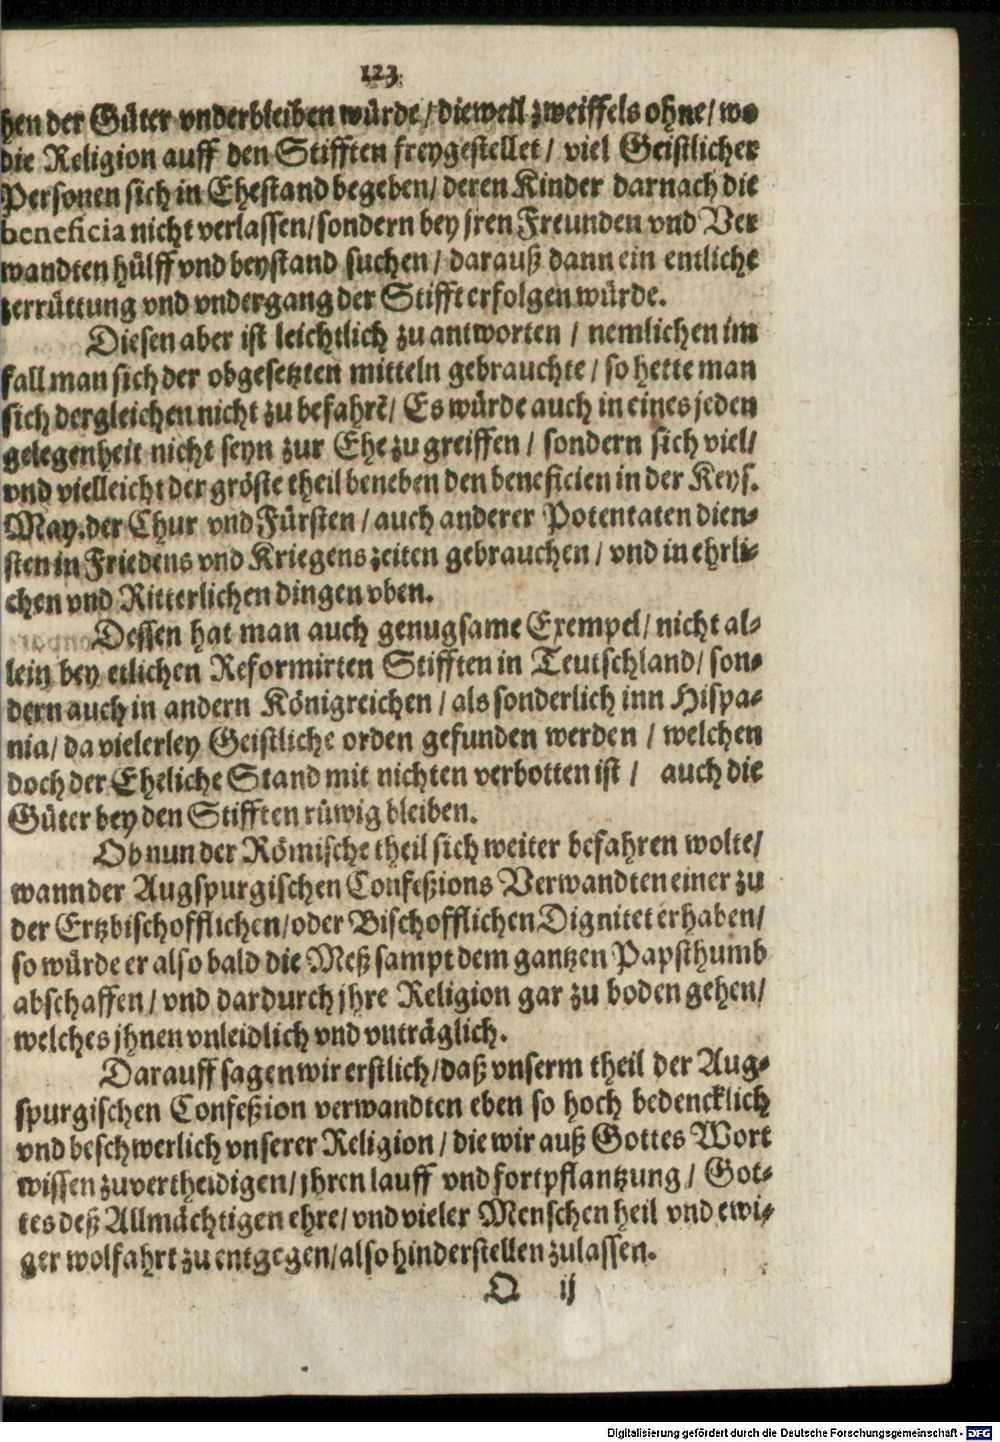 123
hen der Güter vnderbleiben würde / dieweil zweiffels ohne / wo
die Religion auff den Stifften freygestellet / viel Geistlicher
Personen sich in Ehestand begeben / deren Kinder darnach die
beneficia nicht verlassen / sondern bey jren Freunden vnd Ver
wandten hülff vnd beystand suchen / darauß dann ein entliche
zerrüttung vnd vndergang der Stifft erfolgen würde.
Diesen aber ist leichtlich zu antworten / nemlichen im
fall man sich der obgesetzten mitteln gebrauchte / so hette man
sich dergleichen nicht zu befahrẽ / Es würde auch in eines jeden
gelegenheit nicht seyn zur Ehe zu greiffen / sondern sich viel /
vnd vielleicht der gröste theil beneben den beneficien in der Keys.
May. der Chur vnd Fürsten / auch anderer Potentaten dien-
sten in Friedens vnd Kriegens zeiten gebrauchen / vnd in ehrli-
chen vnd Ritterlichen dingen vben.
Dessen hat man auch genugsame Exempel / nicht al-
lein bey etlichen Reformirten Stifften in Teutschland / son-
dern auch in andern Königreichen / als sonderlich inn Hispa-
nia / da vielerley Geistliche orden gefunden werden / welchen
doch der Eheliche Stand mit nichten verbotten ist / auch die
Güter bey den Stifften rüwig bleiben.
Ob nun der Römische theil sich weiter befahren wolte /
wann der Augspurgischen Confeßions Verwandten einer zu
der Ertzbischofflichen / oder Bischofflichen Dignitet erhaben /
so würde er also bald die Meß sampt dem gantzen Papsthumb
abschaffen / vnd dardurch jhre Religion gar zu boden gehen /
welches jhnen vnleidlich vnd vnträglich.
Darauff sagen wir erstlich / daß vnserm theil der Aug-
spurgischen Confeßion verwandten eben so hoch bedencklich
vnd beschwerlich vnserer Religion / die wir auß Gottes Wort
wissen zuvertheidigen / jhren lauff vnd fortpflantzung / Got-
tes deß Allmächtigen ehre / vnd vieler Menschen heil vnd ewi-
ger wolfahrt zu entgegen / also hinderstellen zulassen.
Q ij
Digitalisierung gefördert durch die Deutsche Forschungsgemeinschaft - DFG